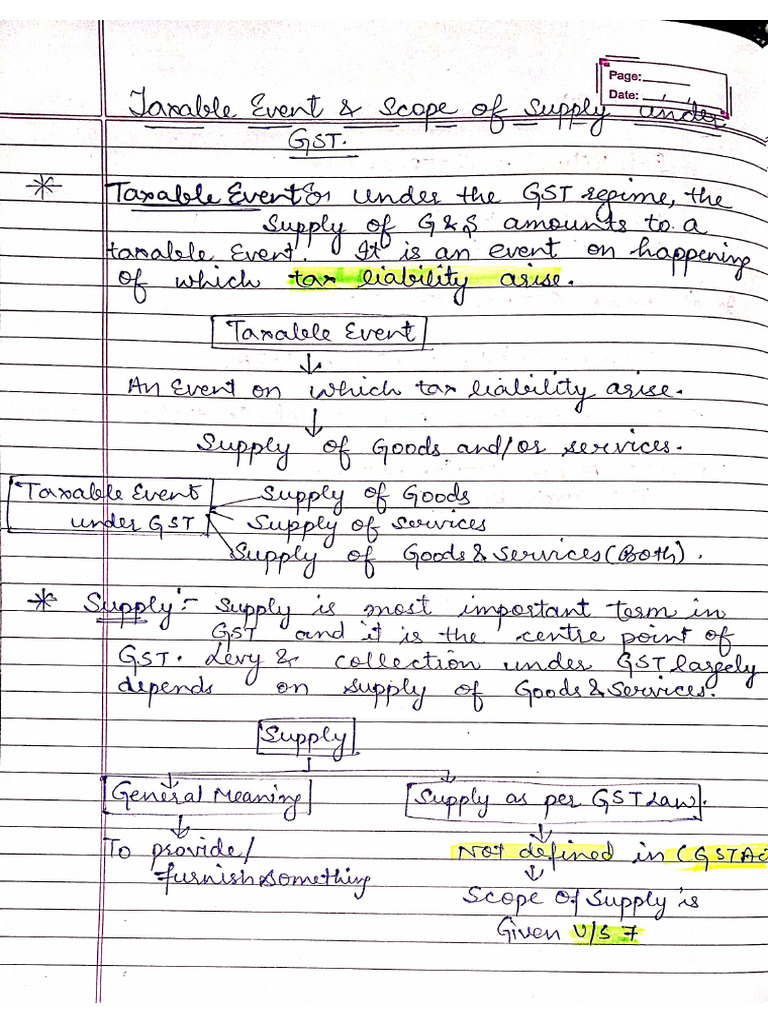 Page:
Date:
Taxable Event & Scope of Supply under
GST.
* Taxable Event:- under the GST regime, the
Supply of G & S amounts to a
taxable Event. It is an event on happening
of which tax liability arise.
Taxable Event
An Event on which tax liability arise.
Supply of Goods and/or services.
Taxable Event Supply of Goods
under GST Supply of services
Supply of Goods & Services (Both).
* Supply:- Supply is most important term in
GST and it is the centre point of
GST. Levy & collection under GST largely
depends on supply of Goods & Services.
Supply
General Meaning Supply as per GST Law.
To provide/ Not defined in CGST Ac
furnish something Scope Of Supply is
Given U/S 7